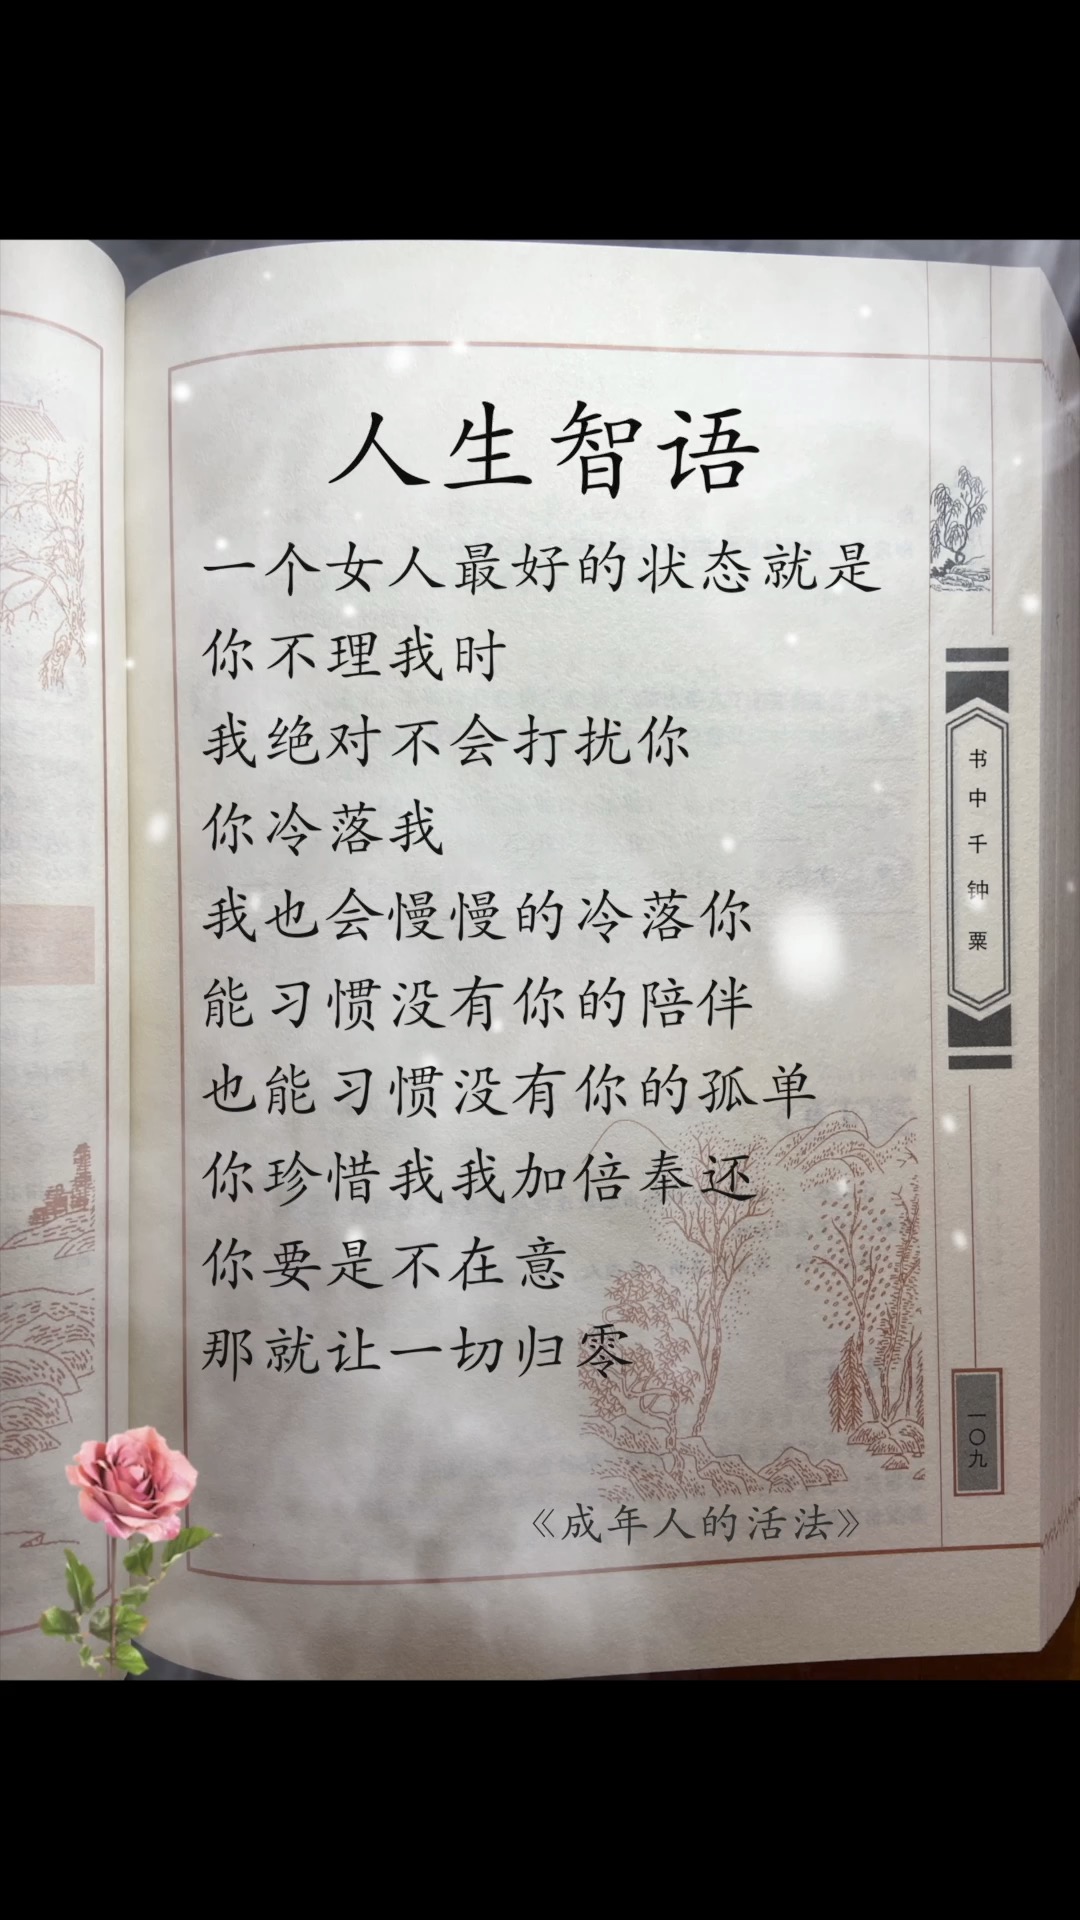 人生智语
一个女人最好的状态就是
你不理我时
我绝对不会打扰你
你冷落我
我也会慢慢的冷落你
能习惯没有你的陪伴
也能习惯没有你的孤单
你珍惜我我加倍奉还
你要是不在意
那就让一切归零
《成年人的活法》
书中千钟粟
一〇九